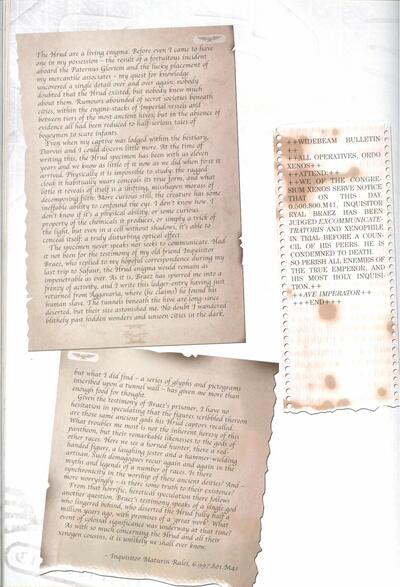 The Hrud are a living enigma. Before even I came to have
one in my possession – the result of a fortuitous incident
aboard the Paternus Gloriem and the lucky placement of
my mercantile associates – my quest for knowledge
uncovered a single detail over and over again: nobody
doubted that the Hrud existed, but nobody knew much
about them. Rumours abounded of secret societies beneath
cities, within the engine-stacks of Imperial vessels and
between tiers of the most ancient hives; but in the absence of
evidence all had been reduced to half-serious tales of
bogeymen to scare infants.
Even when my captive was lodged within the bestiary,
Darvus and I could discern little more. At the time of
writing this, the Hrud specimen has been with us eleven
years and we know as little of it now as we did when it first
arrived. Physically it is impossible to study: the ragged
cloak it habitually wears conceals its true form, and what
little it reveals of itself is a shifting, misshapen morass of
decomposing filth. More curious still, the creature has some
ineffable ability to confound the eye. I don't know how. I
don't know if it's a physical ability, or some curious
property of the chemicals it produces, or simply a trick of
the light, but even in a cell without shadows, it's able to
conceal itself: a truly disturbing optical effect.
The specimen never speaks nor seeks to communicate. Had
it not been for the testimony of my old friend Inquisitor
Braez, who replied to my hopeful correspondence during my
last trip to Safaur, the Hrud enigma would remain as
impenetrable as ever. As it is, Braez has spurred me into a
frenzy of activity, and I write this ledger-entry having just
returned from Aggavaria, where (he claims) he found his
human slave. The tunnels beneath the hive are long-since
deserted, but their size astonished me. No doubt I wandered
blithely past hidden wonders and unseen cities in the dark,
but what I did find – a series of glyphs and pictograms
inscribed upon a tunnel wall – has given me more than
enough food for thought.
Given the testimony of Braez's prisoner, I have no
hesitation in speculating that the figures scribbled thereon
are those same ancient gods his Hrud captors recalled.
What troubles me most is not the inherent heresy of this
pantheon, but their remarkable likenesses to the gods of
other races. Here we see a horned hunter, there a red-
handed figure, a laughing jester and a hammer-wielding
artisan. Such demagogues recur again and again in the
myths and legends of a number of races. Is there
synchronicity in the worship of these ancient deities? And –
more worryingly – is there some truth to their existence?
From that horrific, heretical speculation there follows
another question. Braez's testimony speaks of a single god
who lingered behind, who deserted the Hrud fully half a
million years ago, with promises of a 'great work'. What
event of colossal significance was underway at that time?
As with so much concerning the Hrud and all their
xenogen cousins, it is unlikely we shall ever know.
- Inquisitor Maturin Ralei, 6.997.801.M41
++WIDEBEAM BULLETIN
++
++ALL OPERATIVES, ORDO
XENOS++
++ATTEND:++
++WE OF THE CONGRE-
SIUM XENOS SERVE NOTICE
THAT ON THIS DAY,
0.506.800.M41, INQUISITOR
RYAL BRAEZ HAS BEEN
JUDGED EXCOMMUNICATE-
TRAITORIS AND XENOPHILE
IN TRIAL BEFORE A COUN-
CIL OF HIS PEERS. HE IS
CONDEMNED TO DEATH.
SO PERISH ALL ENEMIES OF
THE TRUE EMPEROR, AND
HIS MOST HOLY INQUISI-
TION.++
++AVE IMPERATOR++
+++END+++